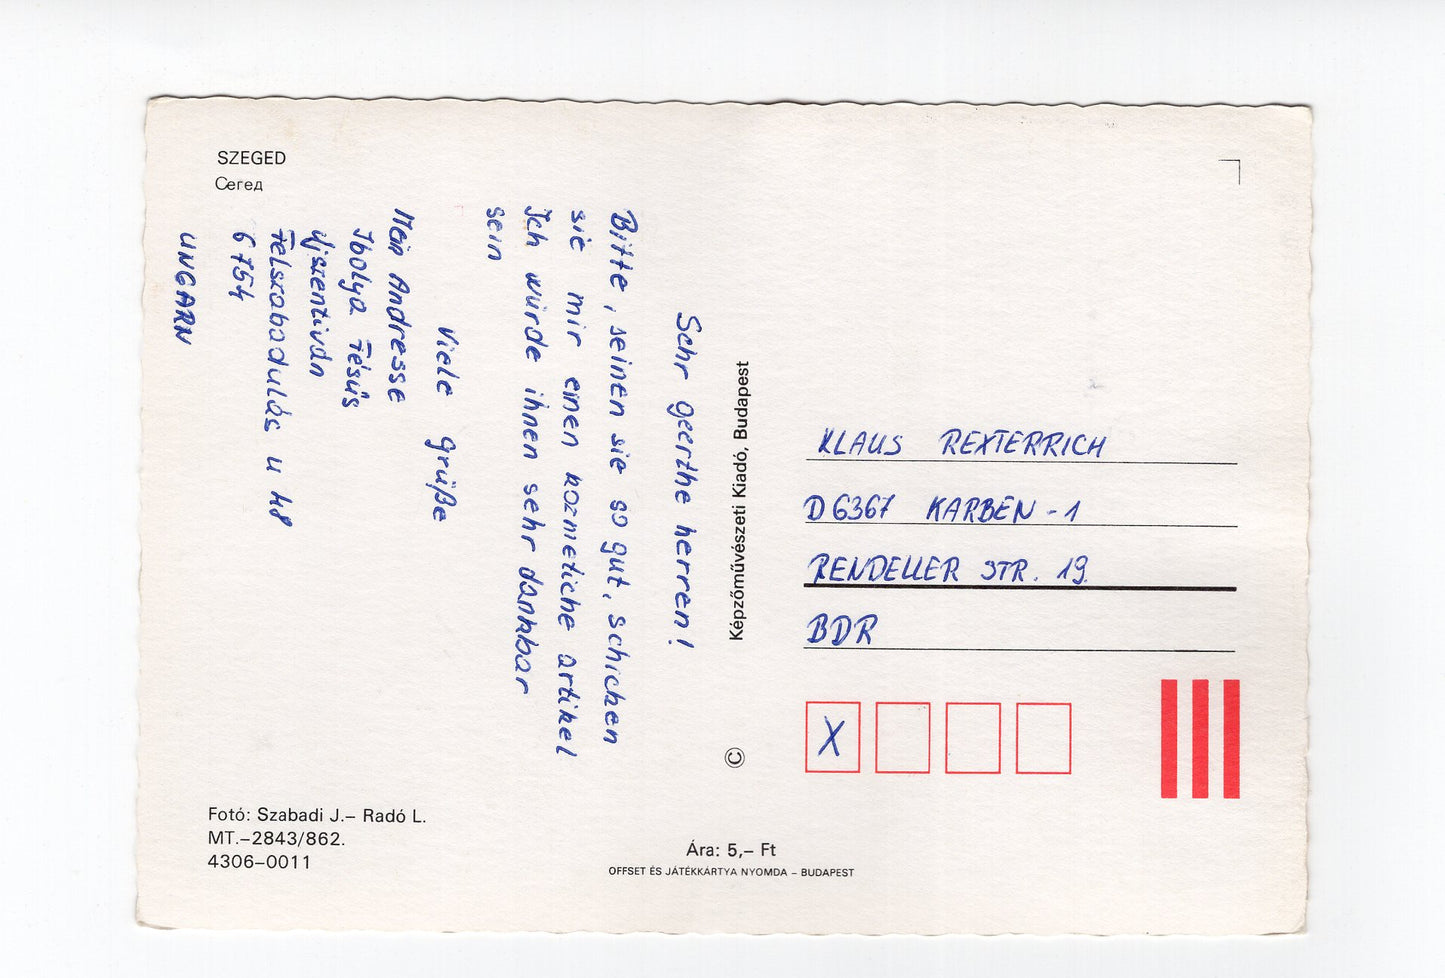 SZEGED
Сегед
Sehr geerthe herren!
Bitte, seinen sie so gut, schicken
sie mir einen kozmetiche artikel
Ich würde ihnen sehr dankbar
sein
Viele grüße
Mein Andresse
Ibolya Tésús
Újszentiván
Felszabadulás u 48
6754
UNGARN
Fotó: Szabadi J.– Radó L.
MT.–2843/862.
4306–0011
Képzőművészeti Kiadó, Budapest
©
Ára: 5,– Ft
OFFSET ÉS JÁTÉKKÁRTYA NYOMDA – BUDAPEST
KLAUS REXTERRICH
D 6367 KARBEN - 1
RENDELLER STR. 19.
BDR
X